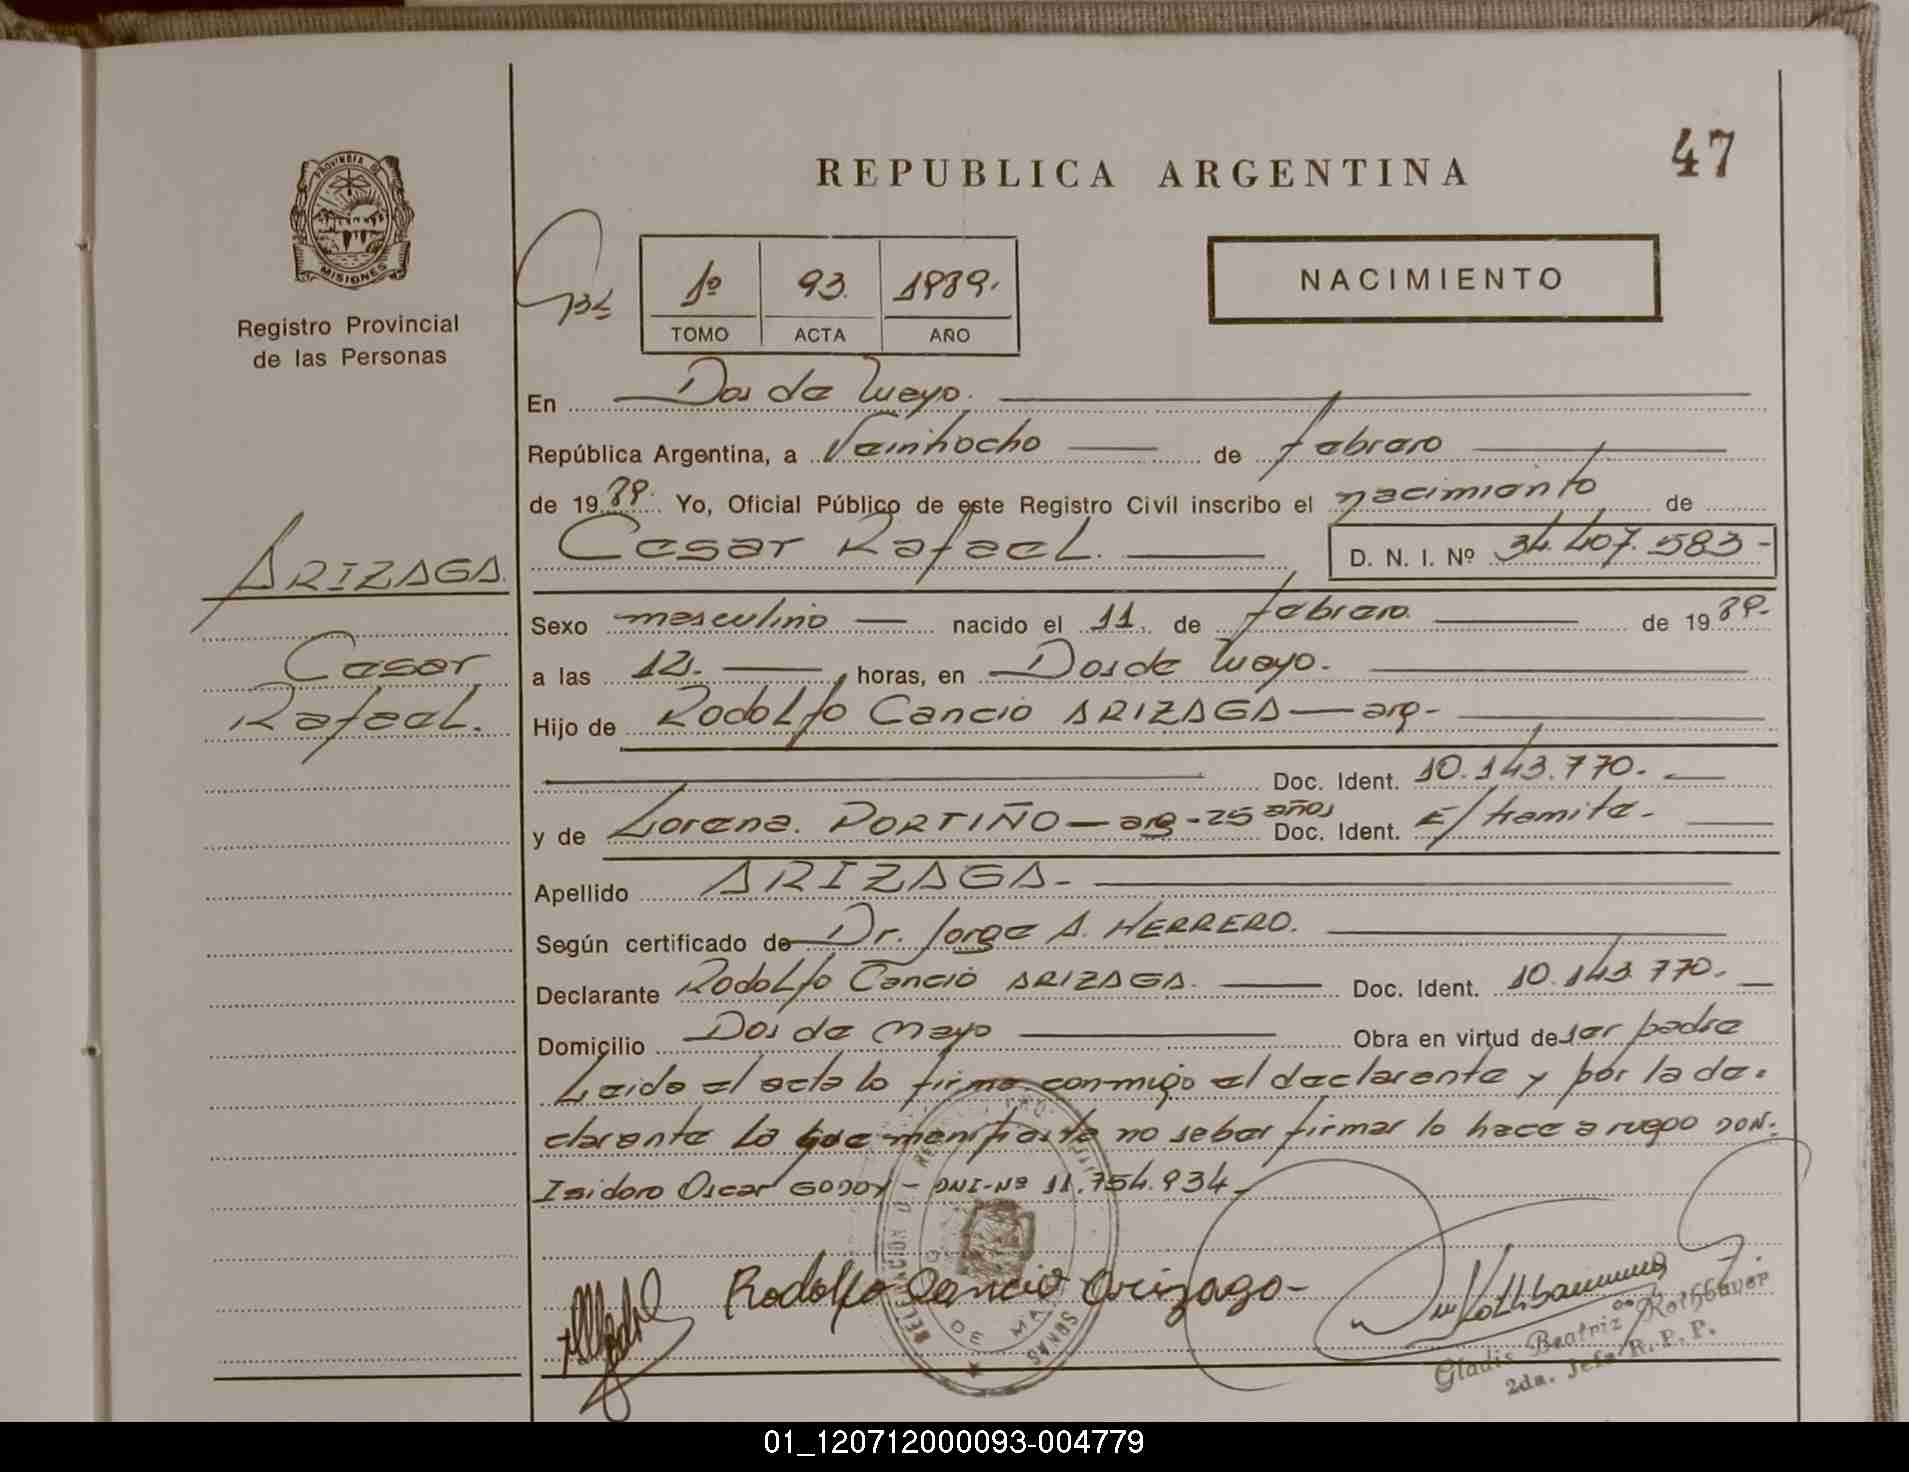 47
REPUBLICA ARGENTINA
PROVINCIA DE
MISIONES
Registro Provincial
de las Personas
NACIMIENTO
1º 93. 1989.
TOMO ACTA AÑO
En Dos de Mayo.
República Argentina, a Veintiocho de febrero
de 1989. Yo, Oficial Público de este Registro Civil inscribo el nacimiento de
Cesar Rafael. D. N. I. Nº 34.407.583-
ARIZAGA.
Cesar
Rafael.
Sexo masculino nacido el 11. de febrero. de 1989.
a las 12. horas, en Dos de Mayo.
Hijo de Rodolfo Cancio ARIZAGA — arg-
Doc. Ident. 10.143.770.
y de Lorena. PORTIÑO — arg - 25 años Doc. Ident. E/ tramite.
Apellido ARIZAGA-
Según certificado de Dr. Jorge A. HERRERO.
Declarante Rodolfo Cancio ARIZAGA. Doc. Ident. 10.143.770.
Domicilio Dos de Mayo Obra en virtud de ser padre
Leida el acta lo firma conmigo el declarante y por la de.
clarante la que manifiesta no saber firmar lo hace a ruego DON.
Isidoro Oscar GODOY - DNI-Nº 11.754.934-
Rodolfo Cancio Arizaga-
Gladis Beatriz Rothbauer
2da. Jefe R. P. P.
01_120712000093-004779